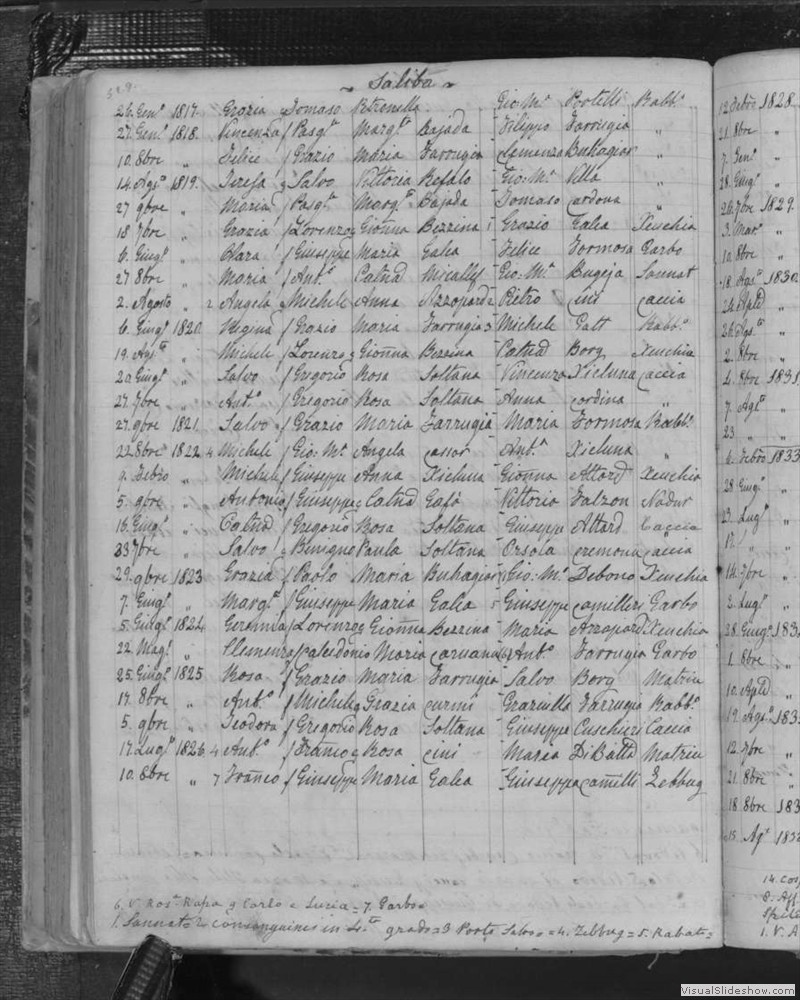 519.
~ Saliba ~
26. Genº 1817. Grazia Tomaso Petronella Gio: Mª Portelli Rabbº
27. Genº 1818. Vincenza f Pasqle Margta Bajada - Filippo Farrugia „
10. 8bre „ Felice f Grazio Maria Farrugia - Clemenza Buhagiar „
14. Agsº 1819. Teresa g Salvo Vittoria Refalo - Gio: Mª Villa „
27 9bre „ Maria f Pasqle Margta Bajada - Tomaso Cardona „
18 7bre „ Grazia f Lorenzo e Gioñna Bezzina 1 Grazio Galea Xeuchia
6. Giugº „ Clara f Giuseppe Maria Galea - Felice Formosa Garbo
27 8bre „ Maria f Antº Catnad Micallef Gio: Mª Bugeja Sannat
2. Agosto „ 2 Angela g Michele Anna Azzopardi 2 Pietro Cini Caccia
6. Giugº 1820. Regina f Grazio Maria Farrugia 3 Michele Gatt Rabbº
19. Agsto „ Michele f Lorenzo e Gioñna Bezzina - Catnad Borg Xeuchia
20 Giugº „ Salvo f Gregorio Rosa Soltana - Vincenza Xicluna Caccia
27. 7bre „ Antº f Gregorio Rosa Soltana - Anna Cordina „
27. 9bre 1821. Salvo f Grazio Maria Farrugia - Maria Formosa Rabbº
22. 8bre 1822. 4 Michele f Gio: Mª Angela Cassar - Antª Xicluna „
9. Febrº „ Michele f Giuseppe Anna Xicluna - Gioñna Attard Xeuchia
5. 9bre „ Antonio f Giuseppe e Catnad Gafà - Vittoria Falzon Nadur
16. Giugº „ Catnad f Gregorio Rosa Soltana Giuseppe Attard Caccia
23 7bre „ Salvo g Benigno Paula Soltana - Orsola Cremona Caccia
29. 9bre 1823 Grazia f Paolo Maria Buhagiar Gio: Mª Debono Xeuchia
7. Giugº „ Margta f Giuseppe Maria Galea 5 Giuseppe Camilleri Garbo
5. Giugº 1824 Geronima f Lorenzo e Gioñna Bezzina - Maria Azzopardi Xeuchia
22. Magº „ Clemenza f Calcedonio Maria Caruana 6 Antº Farrugia Garbo
25. Giugº 1825 Rosa f Grazio Maria Farrugia - Salvo Borg Matriu
17. 8bre „ Antº f Michele g Grazia Curmi - Graziulla Farrugia Rabbº
5. 9bre „ Teodora f Gregorio Rosa Soltana - Giuseppe Cuschieri Caccia
17. Lugº 1826. 4 Antº f Franco e Rosa Cini - Maria DiBatta Matriu
10. 8bre „ 7 Franco f Giuseppe Maria Galea Giuseppa Camilli Zebbug
6. V. Rosª Rapa g Carlo e Luzia = 7. Garbo =
1. Sannat = 2 Consanguinei in 4to grado = 3 Porto Salvo = 4. Zebbug = 5. Rabato =
12 Febrº 1828.
21. 8bre „
7. Genº „
28. Giugº „
26. 7bre 1829.
3. Marº „
10. 8bre „
18. Agsº 1830.
26. Agsto „
2. 8bre „
4. 8bre 1831.
7. Agto „
23 „ „
6. Febrº 1833
28. Giugº „
23. Lugº „
17. „ „
14. 7bre „
2. Lugº „
28. Giugº 183
1. 8bre „
10. Aple „
19. Agsº 183
12. 7bre „
21. 8bre „
18 8bre 183
15. Agº 183
14. Cos
8. Aff
Spit
1. V. A
VisualSlideshow.com